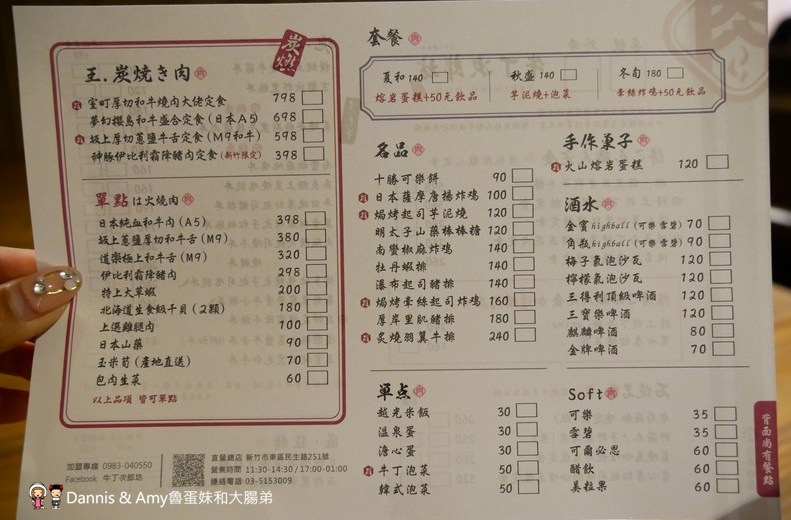 炭燃
王.炭燒き肉
室町厚切和牛燒肉大佬定食 798
夢幻櫻島和牛盛合定食(日本A5) 698
坂上厚切蔥鹽牛舌定食(M9和牛) 598
神豚伊比利霜降豬肉定食(新竹限定) 398
單點は火燒肉
日本純血和牛肉(A5) 398
坂上蔥鹽厚切和牛舌(M9) 380
道樂極上和牛舌(M9) 320
伊比利霜降豬肉 298
特上大草蝦 200
北海道生食級干貝(2顆) 180
上選雞腿肉 100
日本山藥 90
玉米筍(產地直送) 70
包肉生菜 60
以上品項 皆可單點
加盟專線 0983-040550
Facebook 牛丁次郎坊
直營總店 新竹市東區民生路251號
營業時間 11:30-14:30 / 17:00-01:00
連絡電話 03-5153009
套餐
夏和 140
熔岩蛋糕+50元飲品
秋盛 140
芋泥燒+泡菜
冬旬 180
牽絲炸雞+50元飲品
名品
十勝可樂餅 90
日本薩摩唐揚炸雞 100
焗烤起司芋泥燒 120
明太子山藥棒棒糖 120
南蠻椒麻炸雞 140
牡丹蝦排 140
瀑布起司豬排 140
焗烤牽絲起司炸雞 160
厚岸里肌豬排 180
炙燒羽翼牛排 240
單点
越光米飯 30
溫泉蛋 30
溏心蛋 30
牛丁泡菜 50
韓式泡菜 50
手作菓子
火山熔岩蛋糕 120
酒水
金賓highball(可樂 雪碧) 70
角瓶highball(可樂 雪碧) 90
梅子氣泡沙瓦 120
檸檬氣泡沙瓦 120
三得利頂級啤酒 120
三寶樂啤酒 120
麒麟啤酒 80
金牌啤酒 70
Soft
可樂 35
雪碧 35
可爾必思 60
醋飲 60
美粒果 60
背面尚有餐點
Dannis & Amy魯蛋妹和大腸弟